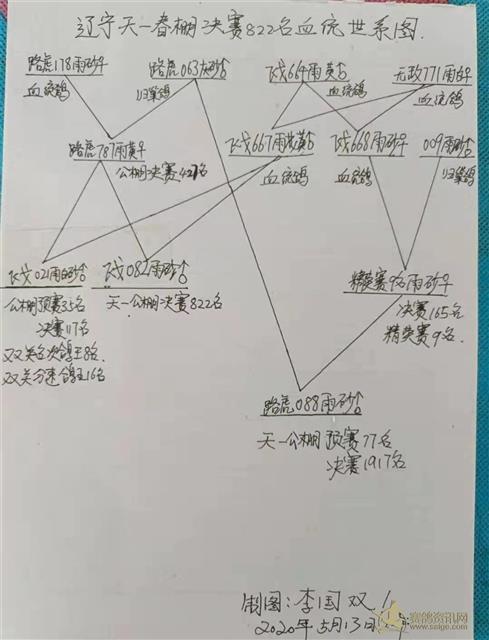 辽宁天一春棚决赛822名血统世系图.
路虎178雨砂♀ 路虎063灰砂♂ 飞戊664雨黄♂ 无政771雨白♀
血统鸽 归巢鸽 血统鸽 血统鸽
路虎787雨黄♀ 飞戊667雨花黄♂ 飞戊668雨砂♀ 009雨砂♂
公棚决赛421名 血统鸽 血统鸽 归巢鸽
飞戊021雨白砂♂ 飞戊082雨砂♂ 精英赛9名雨砂♀
公棚预赛35名 天一公棚决赛822名 决赛165名
决赛117名 精英赛9名.
双关名次鸽王8名.
双关分速鸽王16名
路虎088雨砂♂
天一公棚预赛77名
决赛1917名
制图:李国双!
2020年5月13日
赛鸽资讯网
www.saige.com